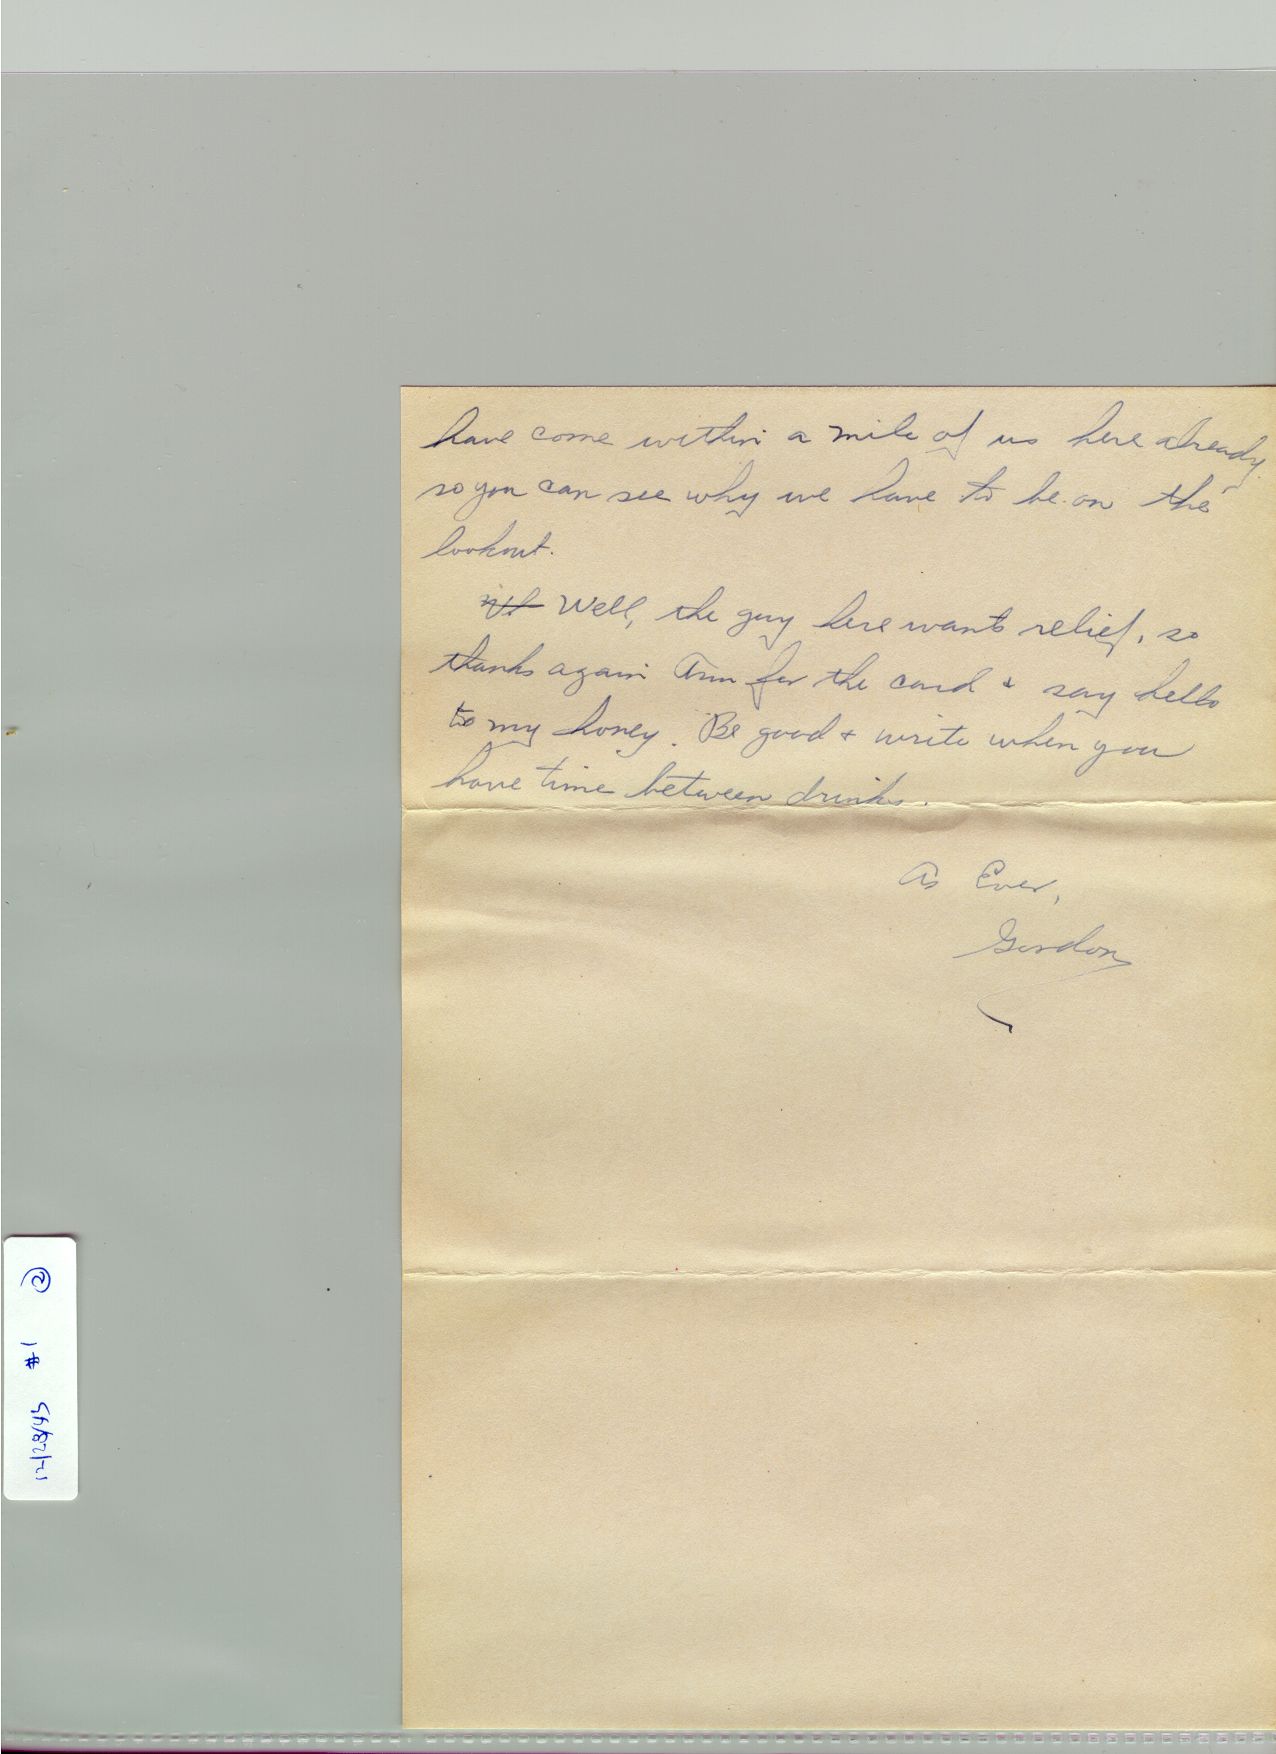 have come within a mile of us here already
so you can see why we have to be on the
lookout.
Well, the guy here wants relief, so
thanks again Ann for the card + say hello
to my honey. Be good + write when you
have time between drinks.
As Ever,
Gordon
12/28/45 #1 ②